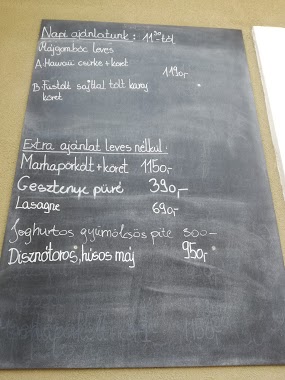 Napi ajánlatunk: 11³⁰-tól
Májgombóc leves
A Hawaii csirke + köret
1190,-
B Füstölt sajttal tölt karaj
köret
Extra ajánlat leves nélkül:
Marhapörkölt + köret 1150,-
Gesztenye püré 390,-
Lasagne 690,-
Joghurtos gyümölcsös pite 300-
Disznótoros, húsos máj 950,-